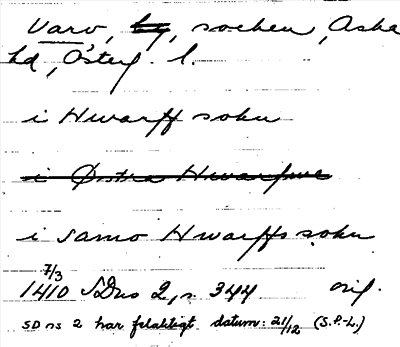 Varv, by, socken, Aska
hd, Österg. l.
i Hwarff sokn
i Østra Hwarfwe
i samo Hwarffs sokn
7/3
1410 SDns 2, s. 344 orig.
SD ns 2 har felaktigt datum: 21/12 (S.P.-L.)